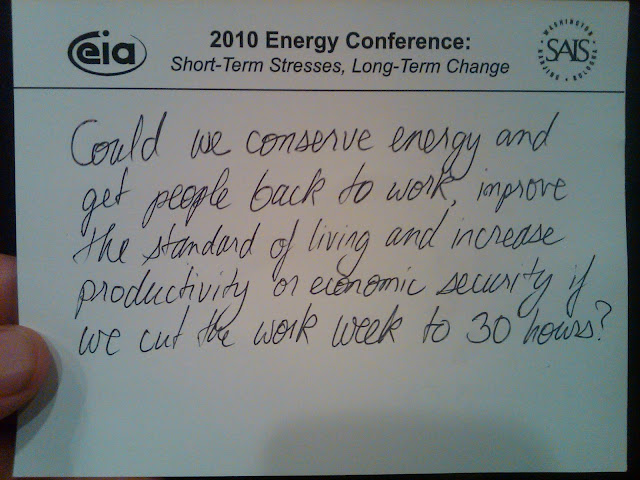 eia
2010 Energy Conference:
Short-Term Stresses, Long-Term Change
WASHINGTON
SAIS
NANJING • BOLOGNA
Could we conserve energy and
get people back to work, improve
the standard of living and increase
productivity or economic security if
we cut the work week to 30 hours?